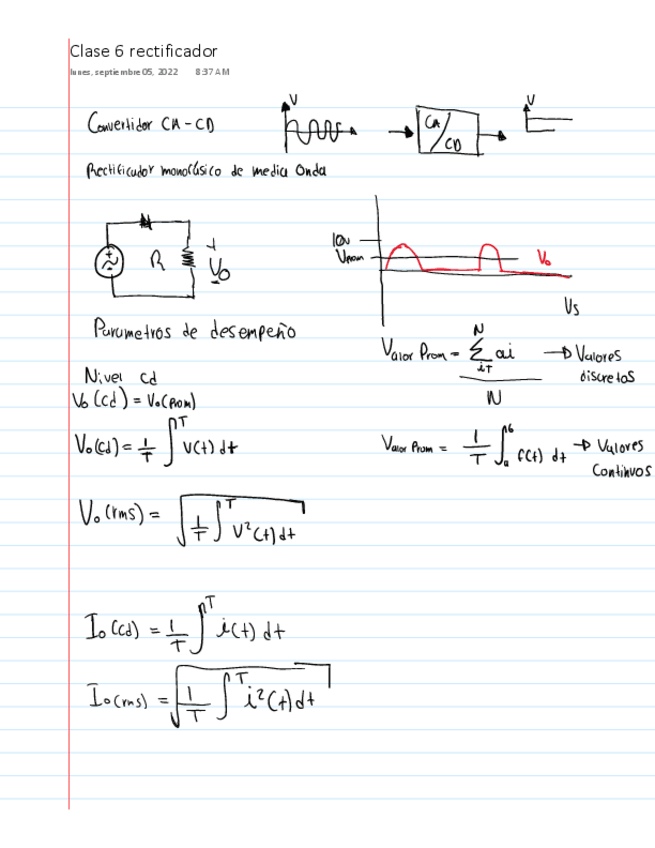 Clase 6 rectificador
lunes, septiembre 05, 2022 8:37 AM
Convertidor CA-CD
V
CA/CD
V
Rectificador monofásico de media Onda
R
+
Vo
-
10v
Vprom
Vo
Vs
Parametros de desempeño
Valor Prom = N Σ i=1 ai / N → Valores discretos
Nivel cd
Vo (cd) = Vo(prom)
Vo(cd) = 1/T ∫^T v(t) dt
Valor Prom = 1/T ∫_a^b f(t) dt → Valores Continuos
Vo (rms) = √ 1/T ∫^T v²(t) dt
Io (cd) = 1/T ∫^T i(t) dt
Io(rms) = √ 1/T ∫^T i²(t) dt